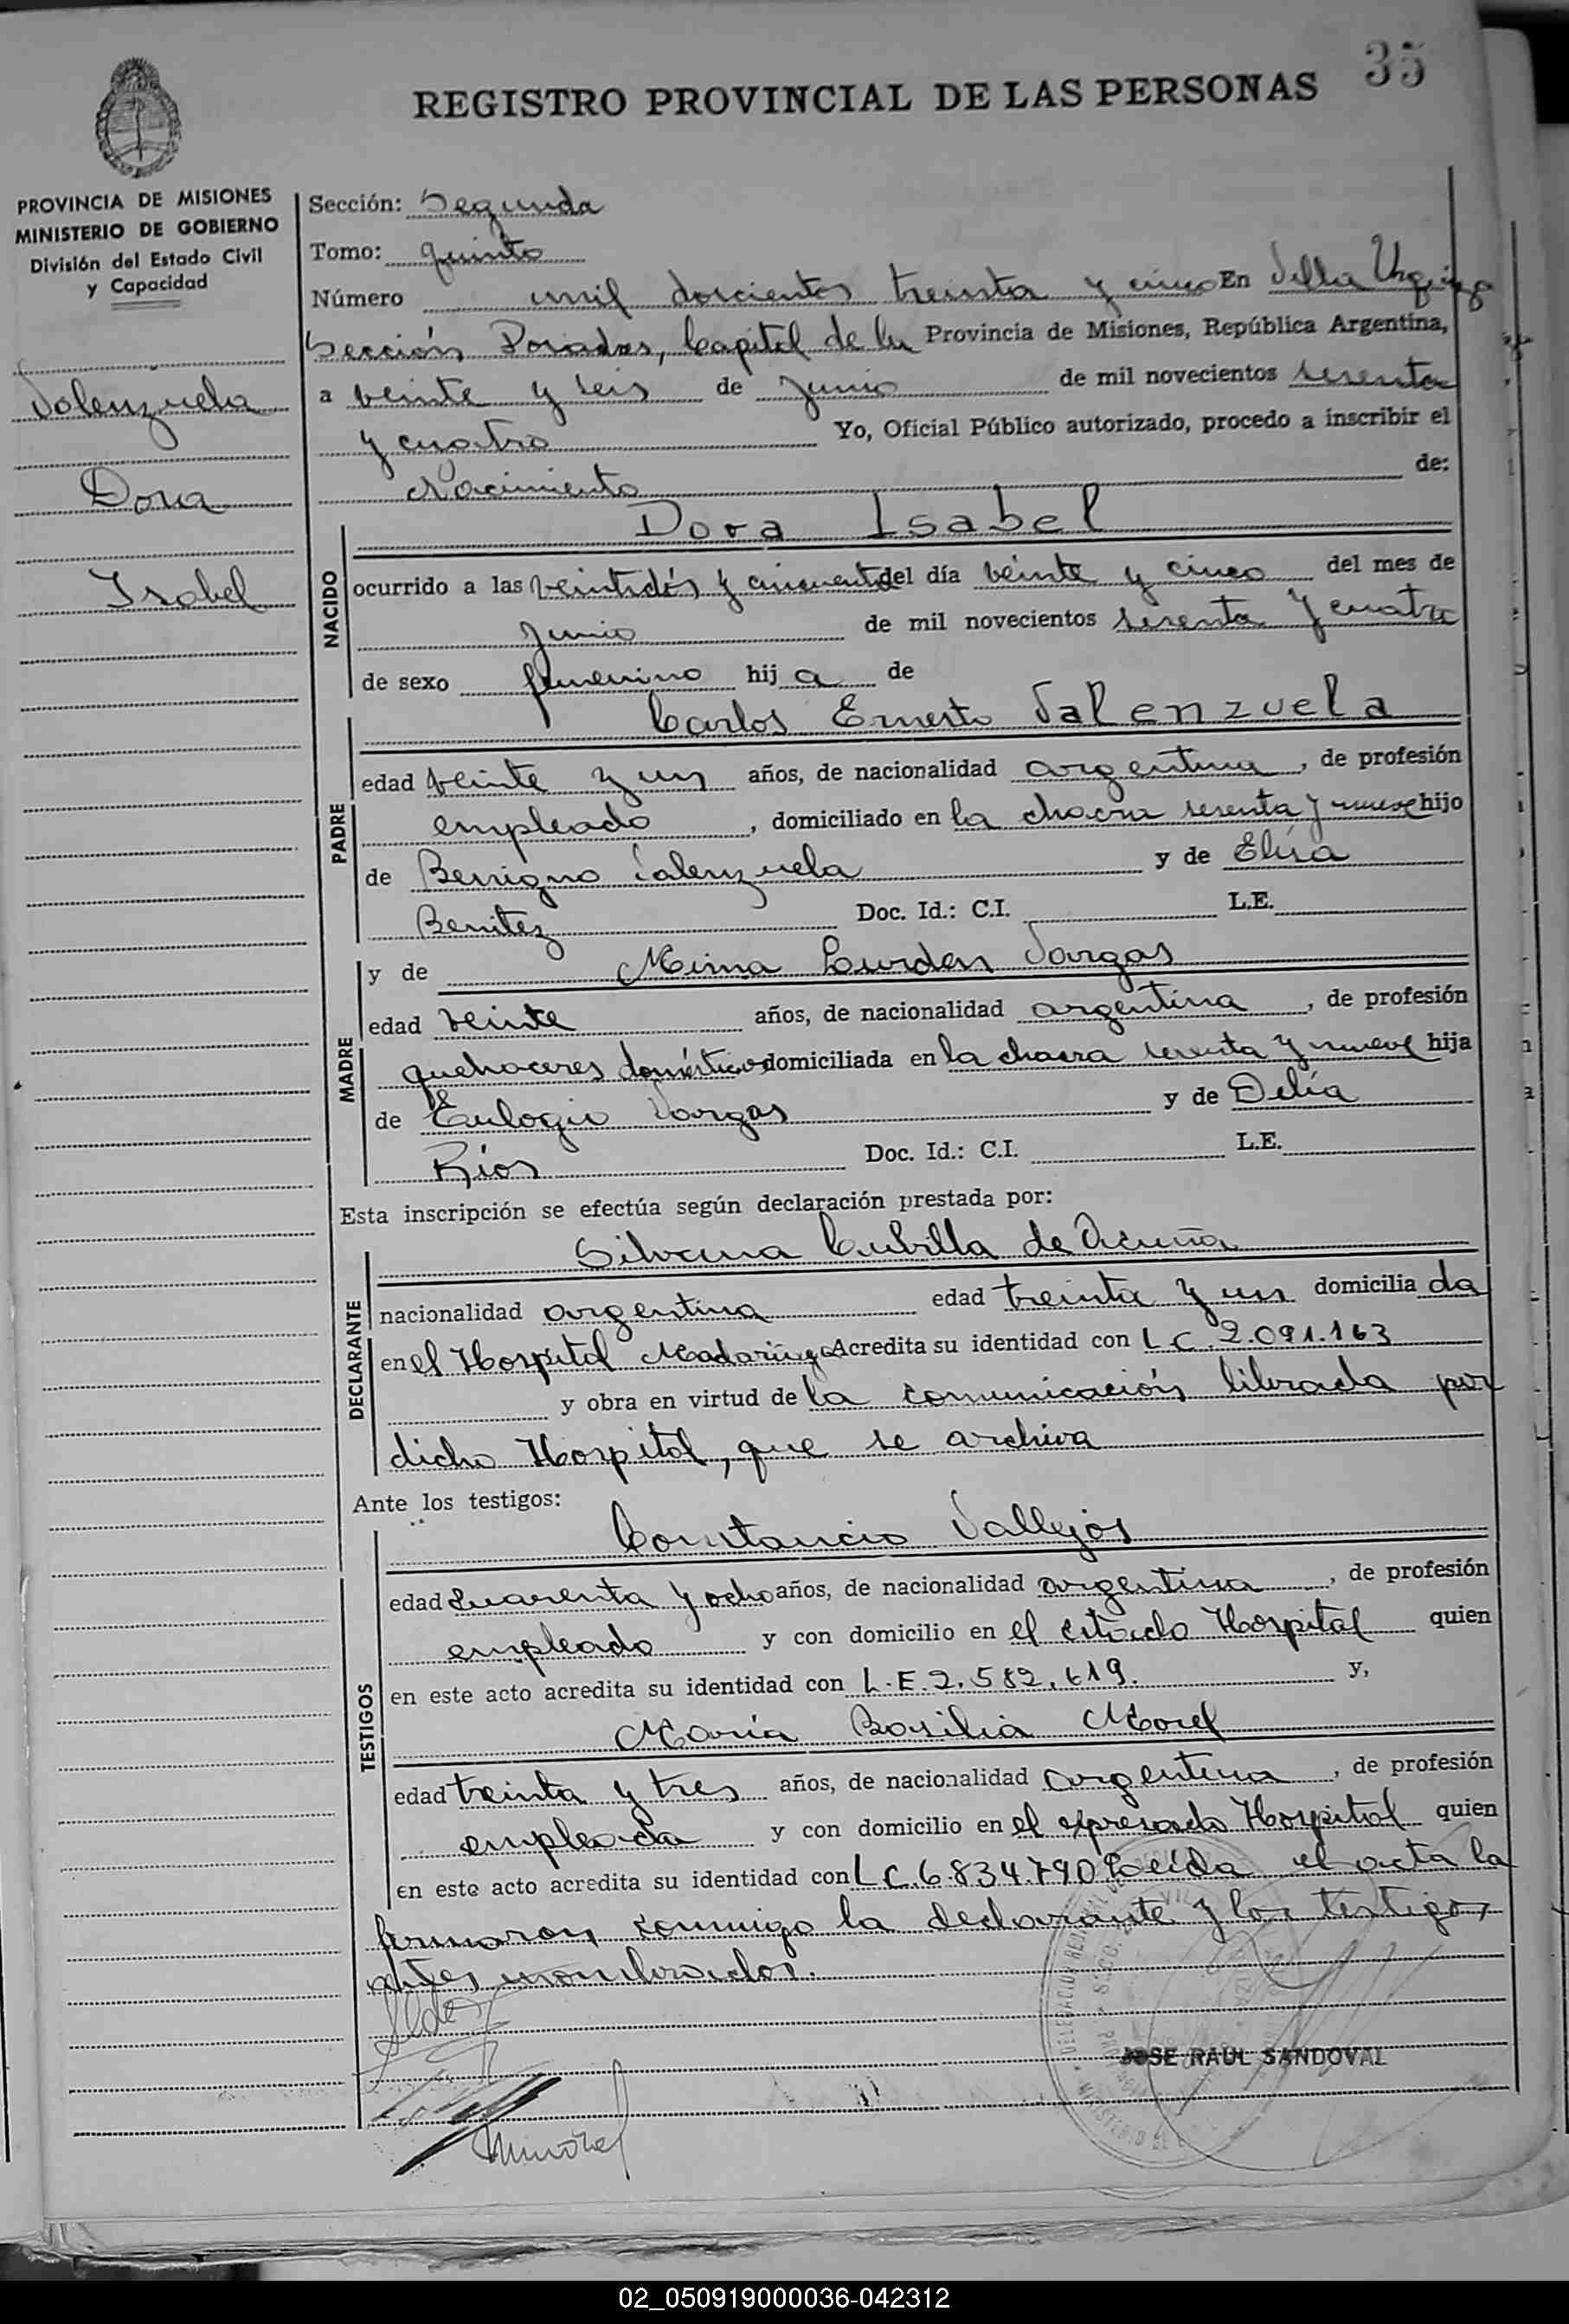 35
REGISTRO PROVINCIAL DE LAS PERSONAS
PROVINCIA DE MISIONES
MINISTERIO DE GOBIERNO
División del Estado Civil
y Capacidad
Valenzuela
Dora
Isabel
Sección: Segunda
Tomo: quinto
Número mil doscientos treinta y cinco En Villa Urquiza
Sección Posadas, Capital de la Provincia de Misiones, República Argentina,
a veinte y seis de junio de mil novecientos sesenta
y cuatro Yo, Oficial Público autorizado, procedo a inscribir el
Nacimiento de:
Dora Isabel
NACIDO
ocurrido a las veintidós y cincuenta del día veinte y cinco del mes de
junio de mil novecientos sesenta y cuatro
de sexo femenino hij a de
Carlos Ernesto Valenzuela
PADRE
edad veinte y un años, de nacionalidad argentina, de profesión
empleado, domiciliado en la chacra sesenta y nueve hijo
de Benigno Valenzuela y de Elisa
Benitez Doc. Id.: C.I. L.E.
MADRE
y de Mirna Lurdes Vargas
edad veinte años, de nacionalidad argentina, de profesión
quehaceres domésticos domiciliada en la chacra sesenta y nueve hija
de Eulogio Vargas y de Delia
Ríos Doc. Id.: C.I. L.E.
Esta inscripción se efectúa según declaración prestada por:
DECLARANTE
Silvana Cubilla de Acuña
nacionalidad argentina edad treinta y un domicilia da
en el Hospital Madariaga Acredita su identidad con L C. 2.091.163
y obra en virtud de la comunicación librada por
dicho Hospital, que se archiva
Ante los testigos:
TESTIGOS
Constancio Vallejos
edad cuarenta y ocho años, de nacionalidad argentina, de profesión
empleado y con domicilio en el citado Hospital quien
en este acto acredita su identidad con L.E. 2.582.619. y,
María Basilia Morel
edad treinta y tres años, de nacionalidad argentina, de profesión
empleada y con domicilio en el expresado Hospital quien
en este acto acredita su identidad con L C. 6.834.790 Leída el acta la
firmaron conmigo la declarante y los testigos
antes nombrados.
JOSE RAUL SANDOVAL
02_050919000036-042312